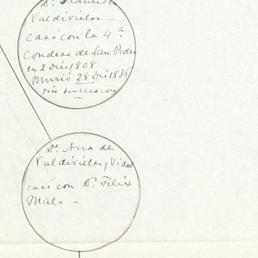 Dn. Francisco
Valdivielso
casó con la 4ª
Condesa de San Pedro
en 2 Dic 1808
Murió 28 Dic 1836
sin sucesion
Da. Ana de
Valdivielso y Vidal
casó con Dn. Felix
Malo -